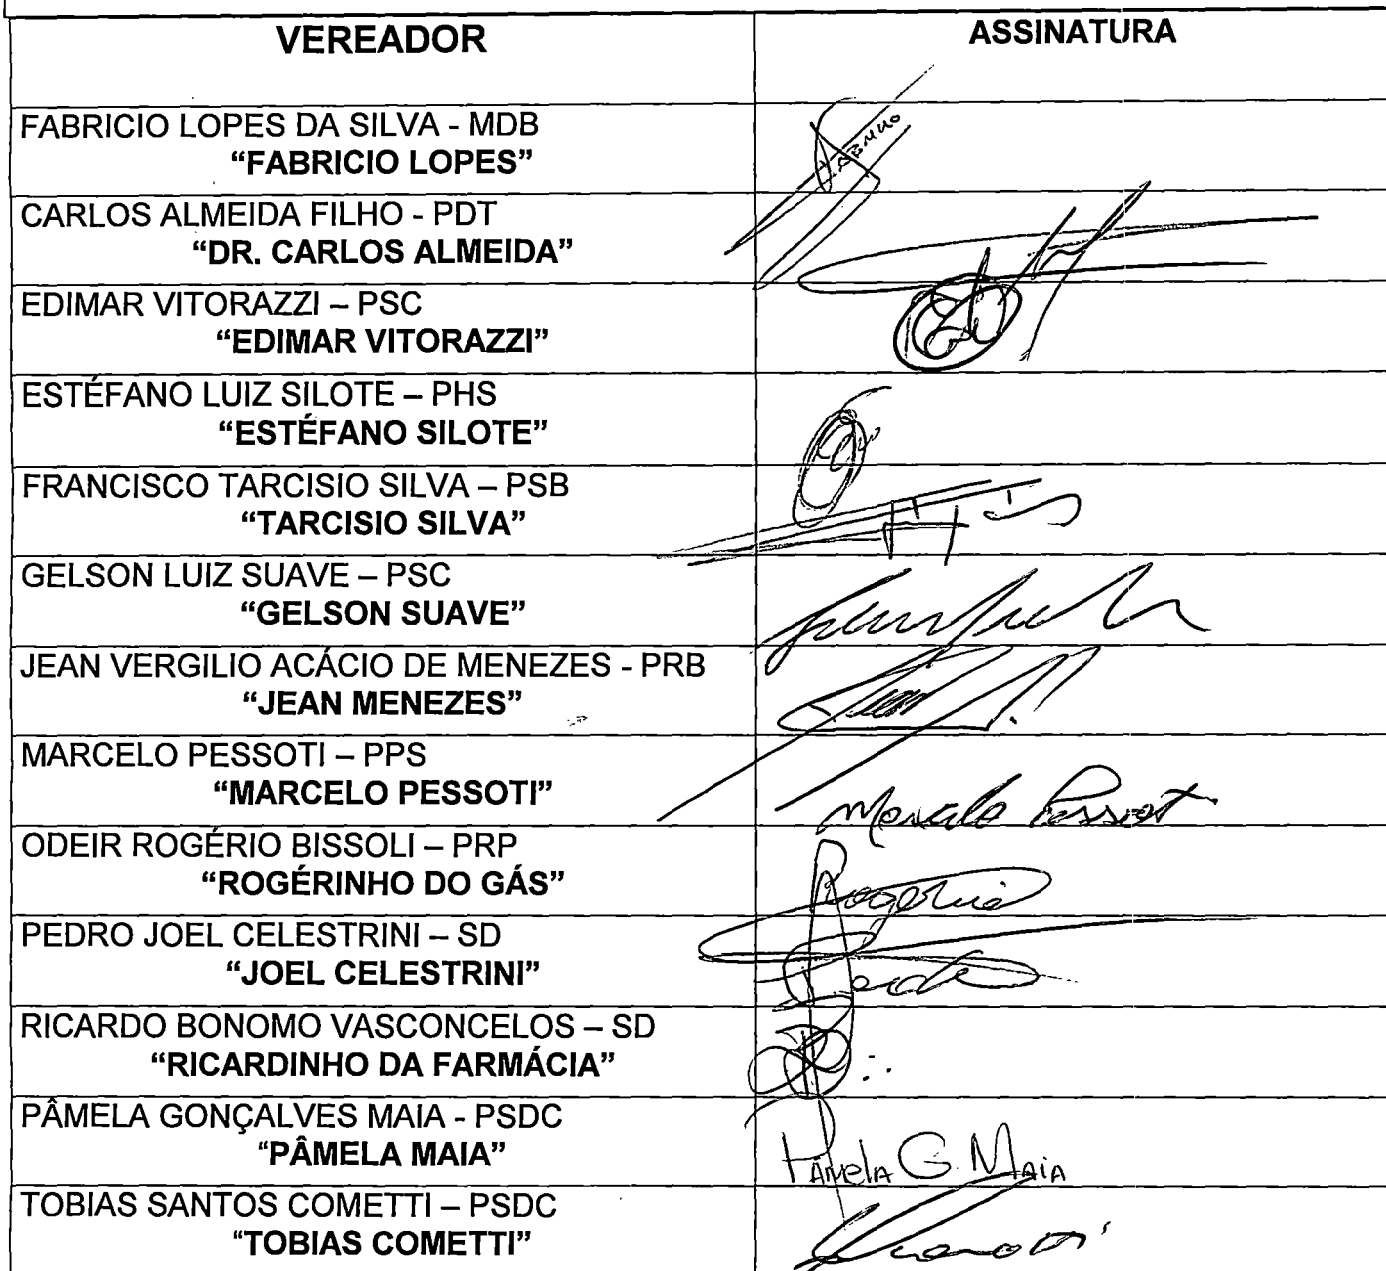 VEREADOR
ASSINATURA
FABRICIO LOPES DA SILVA - MDB
“FABRICIO LOPES”
CARLOS ALMEIDA FILHO - PDT
“DR. CARLOS ALMEIDA”
EDIMAR VITORAZZI – PSC
“EDIMAR VITORAZZI”
ESTÉFANO LUIZ SILOTE – PHS
“ESTÉFANO SILOTE”
FRANCISCO TARCISIO SILVA – PSB
“TARCISIO SILVA”
GELSON LUIZ SUAVE – PSC
“GELSON SUAVE”
JEAN VERGILIO ACÁCIO DE MENEZES - PRB
“JEAN MENEZES”
MARCELO PESSOTI – PPS
“MARCELO PESSOTI”
ODEIR ROGÉRIO BISSOLI – PRP
“ROGÉRINHO DO GÁS”
PEDRO JOEL CELESTRINI – SD
“JOEL CELESTRINI”
RICARDO BONOMO VASCONCELOS – SD
“RICARDINHO DA FARMÁCIA”
PÂMELA GONÇALVES MAIA - PSDC
“PÂMELA MAIA”
Pâmela G. Maia
TOBIAS SANTOS COMETTI – PSDC
“TOBIAS COMETTI”